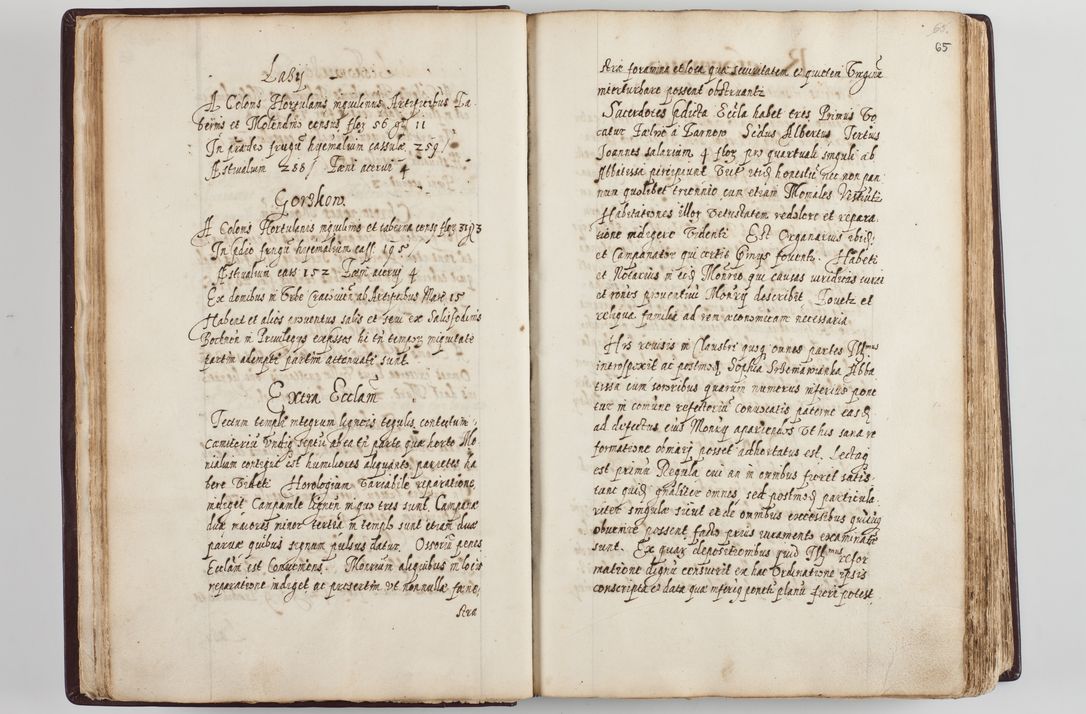 Lasÿ
A Colonis Hortulanis inquilinis Artificibus Ta-
bernis et Molendino census flor 56 gr 11
In prædio frugū hyemalium cassulæ 259/
Æstivalium 288/ Fœni acervi 4
Gorzkow
A Colonis Hortulanis inquilinis et taberna cens9 flor 31 gr 3
In ꝓdio frugū hyemalium cass 195
Æstivalium cass 152 Fœni acervi 4
Ex domibus in Urbe Cracovien ab Artificibus Marc 15
Habent et alios proventus salis et sevi ex Salisfodinis
Bochnen in Privilegijs expssos hi tn temporu iniquitate
partim adempti partim attenuati sunt.
Extra Ecclam
Tectum templi integrum ligneis tegulis contectum,
Cæmiteriū undiq septū ab ea tn parte quæ horto Mo-
nialium contigua est humiliores aliquanto parietes ha
bere videtr Horologium variabile reparatione
indiget Campanile ligneū in quo tres sunt Campanæ
duæ maiores minor tertia in templo sunt etiam duæ
parvæ quibus signum pulsus datur. Ossoriū penes
Ecclam est Conveniens. Monrium aliquibus in locis
reparatione indiget ac præsertim ut nonnullæ fene-
stra
65
stræ foramina et loca quæ securitatem et quietem Virginū
interturbare possent obstruantr
Sacerdotes ꝓdicta Eccla habet tres Primus vo
catur Fælix à Tarnow Scdus Albertus Tertius
Joannes salarium 4 flor pro quartuali singuli ab
Abbatissa percipiunt Victū etiā honestū nec non pan
num quolibet triennio cum etiam Moniales Vestiūtr
Habitationes illor vetustatem redolere et repara-
tione indigere videntr Est Organarius ibidē
et Campanator qui certis Virgs foventr. Habetr
et Notarius in eodē Monrio qui causas iuridicas curat
et rones proventuū Monrij describit. Fovetr et
reliqua familia ad rem œconomicam necessaria
His revisis in Claustri quoq omnes partes Illmus
introspexit ac postmodū Sophia Abba
tissa cum sororibus quarum numerus inferius pone
tur in comune refectoriū convocatis paterne eas
ad defectus eius Monrij aperiendos ut his sana re
formatione obviari posset adhortatus est. Lecta
est primū Regula cui an in omnibus fieret satis-
tane quidē gnāliter omnes sed postmodū particula
riter singulæ sicut et de omnibus excessibus quicūq
obvenire possent facto prius iuramento examinatæ
sunt. Ex quarū depositionibus quid Illmus refor
matione dignū censuerit ex hac Ordinatione ipsis
conscripta et data quæ inferius ponetr planū fieri potest